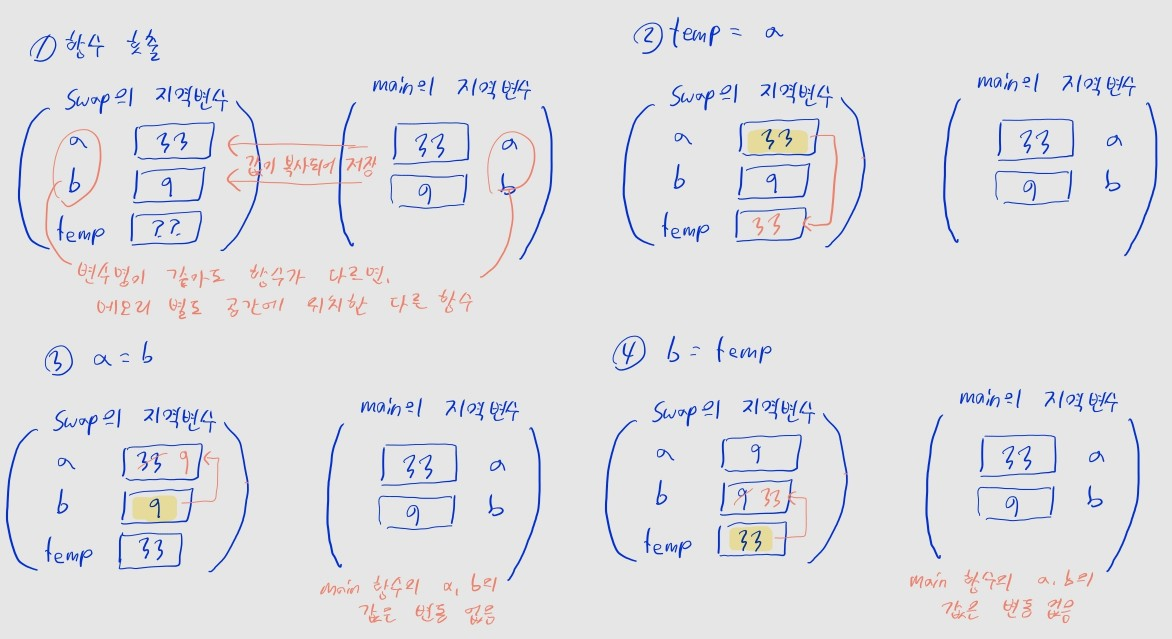 ① 함수 호출
Swap의 지역변수
main의 지역변수
a 33
33 a
b 9
9 b
temp ??
값이 복사되어 저장
변수명이 같아도 함수가 다르면,
메모리 별도 공간에 위치한 다른 함수
② temp = a
Swap의 지역변수
main의 지역변수
a 33
33 a
b 9
9 b
temp 33
③ a = b
Swap의 지역변수
main의 지역변수
a 33 9
33 a
b 9
9 b
temp 33
main 함수의 a, b의
값은 변동 없음
④ b = temp
Swap의 지역변수
main의 지역변수
a 9
33 a
b 9 33
9 b
temp 33
main 함수의 a, b의
값은 변동 없음